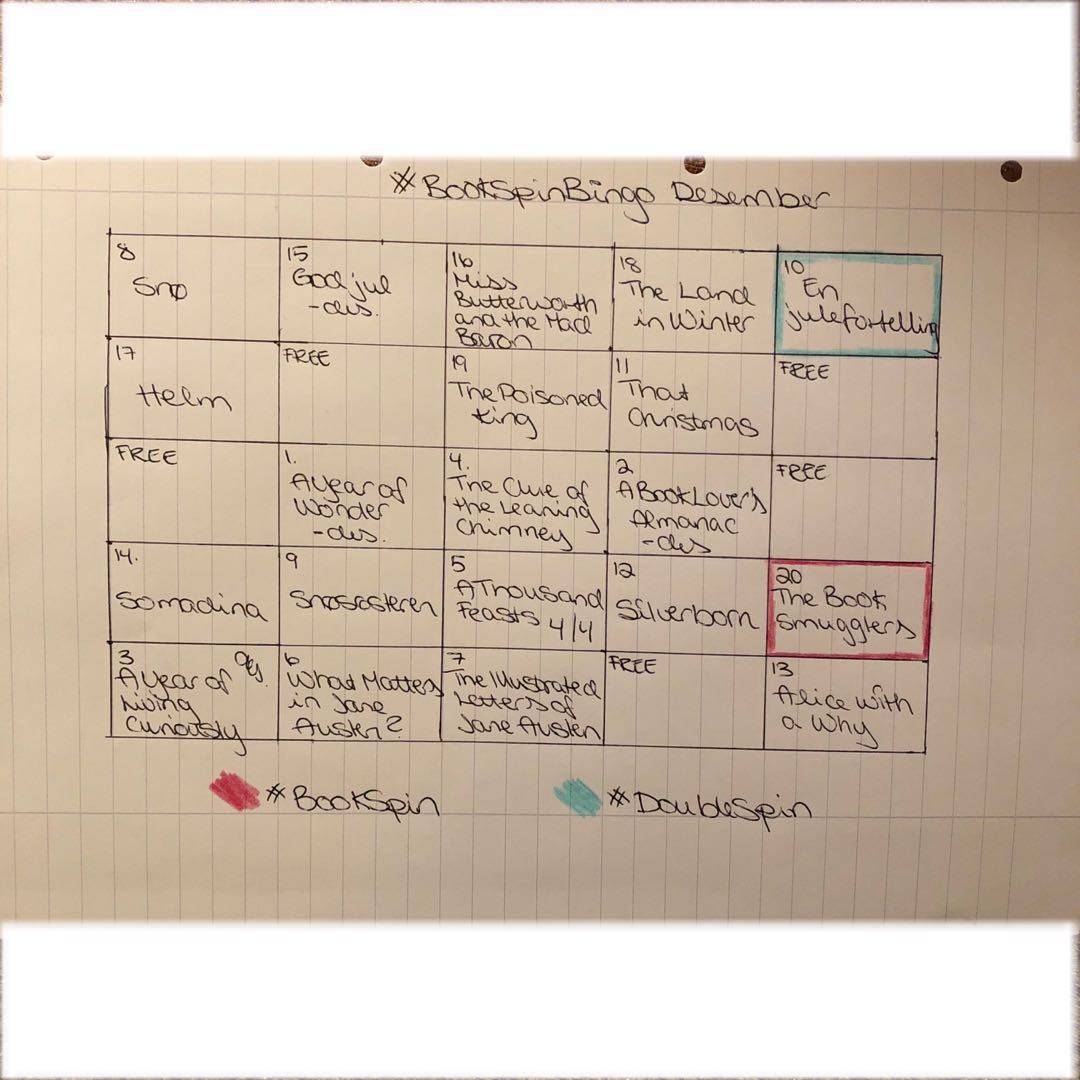 #BookSpinBingo Desember
8
Snø
15
God jul
-des.
16
Miss
Butterworth
and the Mad
Baron
18
The Land
in Winter
10
En
julefortelling
17
Helm
FREE
19
The Poisoned
King
11
That
Christmas
FREE
FREE
1.
A Year of
Wonder
-des.
4.
The Clue of
the Leaning
Chimney
2
A Book Lover's
Almanac
-des
FREE
14.
Somadina
9
Snøsøsteren
5
A Thousand
Feasts 4/4
12
Silverborn
20
The Book
Smugglers
3 des
A Year of
Living
Curiously
6
What Matters
in Jane
Austen?
7
The Illustrated
Letters of
Jane Austen
FREE
13
Alice with
a Why
#BookSpin
#DoubleSpin